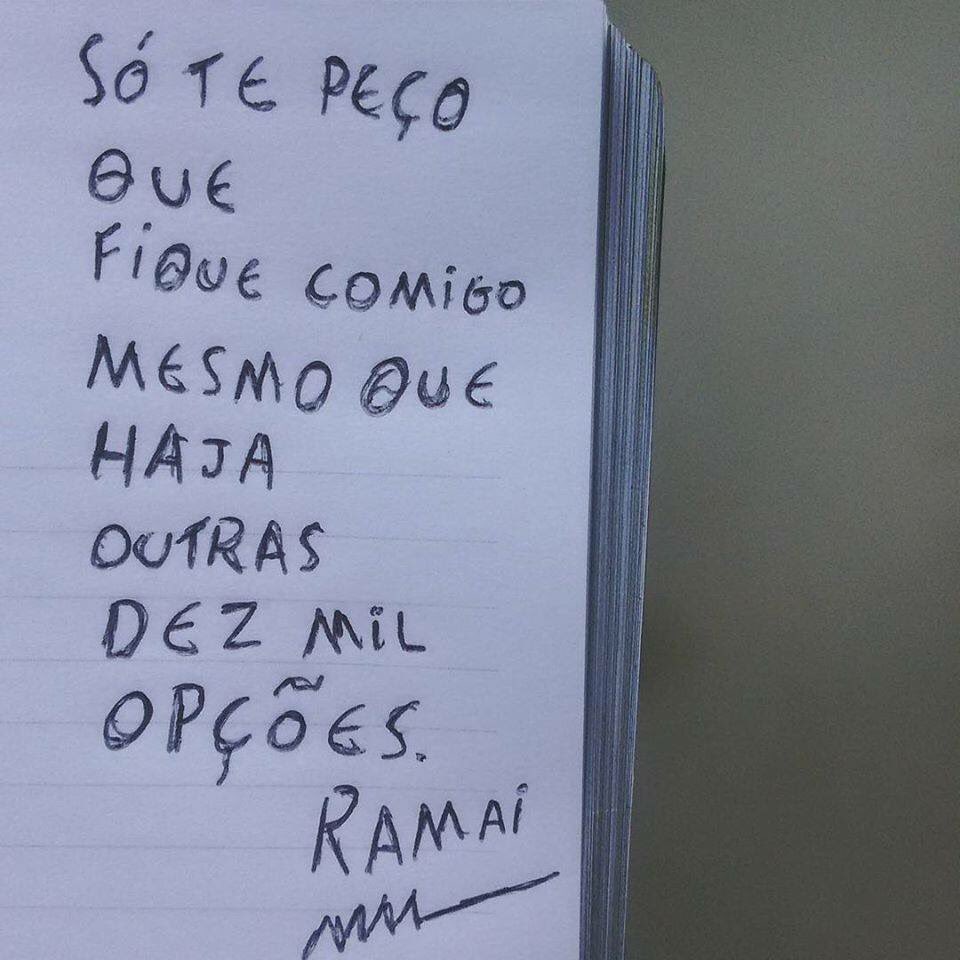 SÓ TE PEÇO
QUE
FiQUE COMiGO
MESMO QUE
HAJA
OUTRAS
DEZ MiL
OPÇÕES.
RAMAi